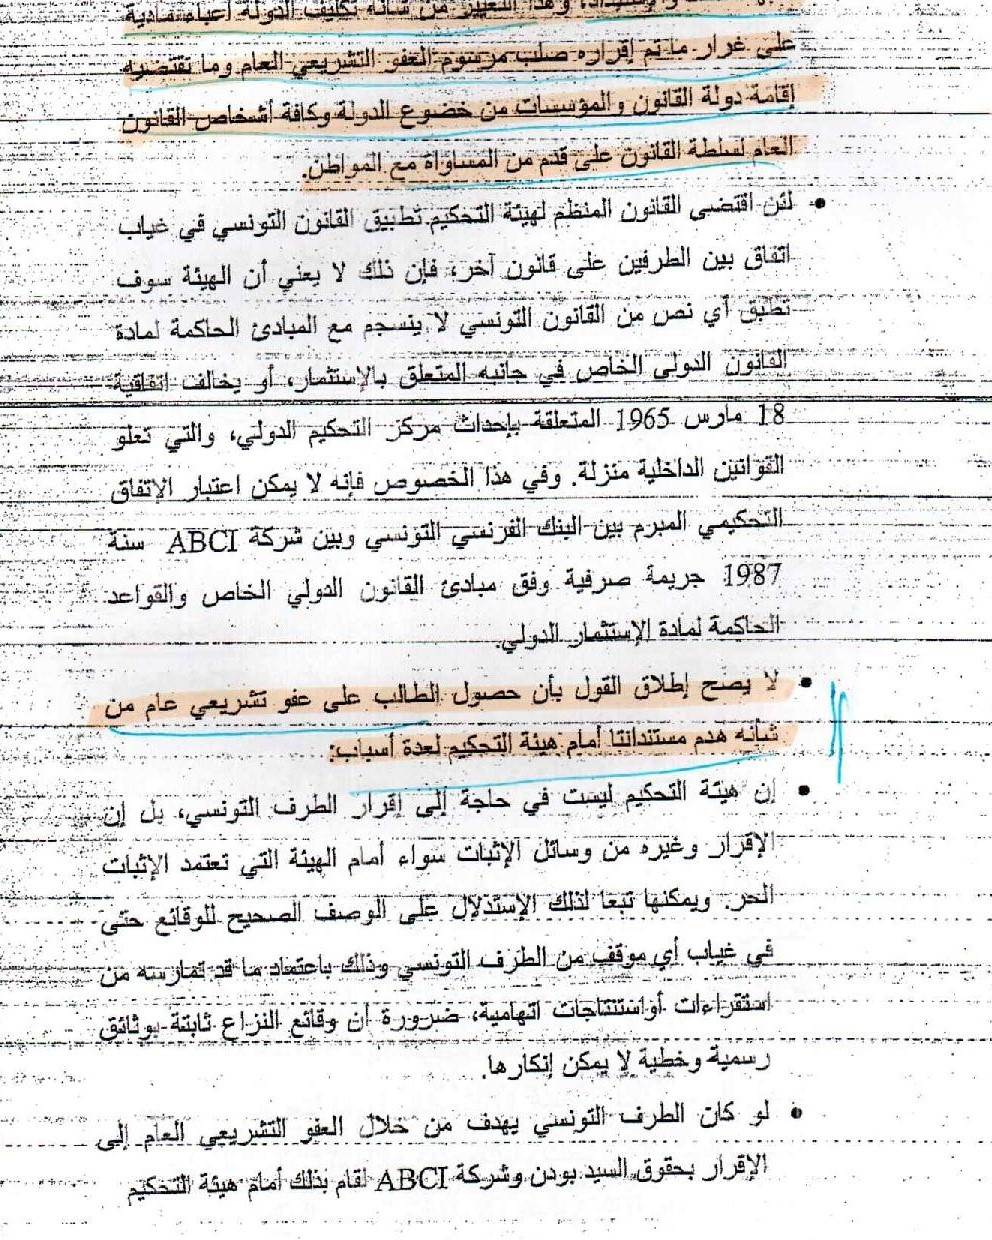 والإستبداد، وهذا التغيير من شأنه تكليف الدولة أعباء مادية
على غرار ما تم إقراره صلب مرسوم العفو التشريعي العام وما تقتضيه
إقامة دولة القانون والمؤسسات من خضوع الدولة وكافة أشخاص القانون
العام لسلطة القانون على قدم من المساواة مع المواطن.
• لئن اقتضى القانون المنظم لهيئة التحكيم تطبيق القانون التونسي في غياب
اتفاق بين الطرفين على قانون آخر، فإن ذلك لا يعني أن الهيئة سوف
تطبق أي نص من القانون التونسي لا ينسجم مع المبادئ الحاكمة لمادة
القانون الدولي الخاص في جانبه المتعلق بالإستثمار، أو يخالف اتفاقية
18 مارس 1965 المتعلقة بإحداث مركز التحكيم الدولي، والتي تعلو
القوانين الداخلية منزلة. وفي هذا الخصوص فإنه لا يمكن اعتبار الإتفاق
التحكيمي المبرم بين البنك الفرنسي التونسي وبين شركة ABCI سنة
1987 جريمة صرفية وفق مبادئ القانون الدولي الخاص والقواعد
الحاكمة لمادة الإستثمار الدولي.
• لا يصح إطلاق القول بأن حصول الطالب على عفو تشريعي عام من
شأنه هدم مستنداتنا أمام هيئة التحكيم لعدة أسباب:
• إن هيئة التحكيم ليست في حاجة إلى إقرار الطرف التونسي، بل إن
الإقرار وغيره من وسائل الإثبات سواء أمام الهيئة التي تعتمد الإثبات
الحر. ويمكنها تبعا لذلك الإستدلال على الوصف الصحيح للوقائع حتى
في غياب أي موقف من الطرف التونسي وذلك باعتماد ما قد تمارسه من
استقراءات أو استنتاجات اتهامية، ضرورة أن وقائع النزاع ثابتة بوثائق
رسمية وخطية لا يمكن إنكارها.
• لو كان الطرف التونسي يهدف من خلال العفو التشريعي العام إلى
الإقرار بحقوق السيد بودن وشركة ABCI لقام بذلك أمام هيئة التحكيم